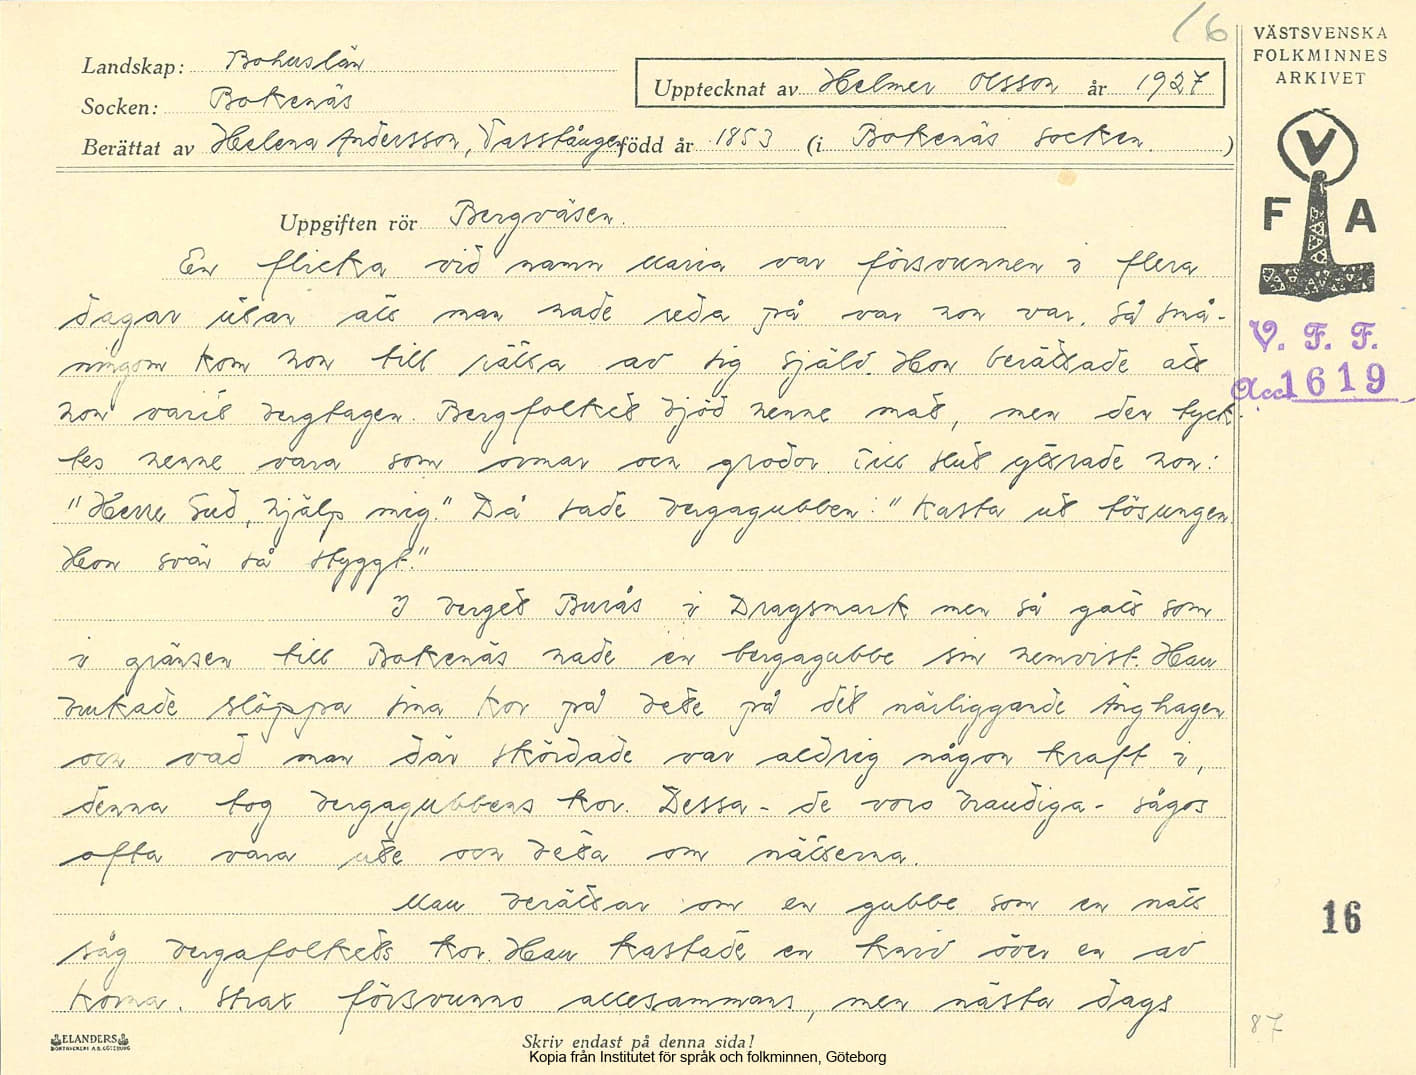 16
VÄSTSVENSKA
FOLKMINNES
ARKIVET
Landskap: Bohuslän
Socken: Bokenäs
Upptecknat av Helmer Olsson år 1927
Berättat av Helena Andersson, Vasstången född år 1853 (i Bokenäs socken.)
V
F A
Uppgiften rör Bergväsen.
En flicka vid namn Maria var försvunnen i flera
dagar utan att man hade reda på var hon var. Så små-
ningom kom hon till rätta av sig själv. Hon berättade att
hon varit bergtagen. Bergfolket bjöd henne mat, men den tyck-
tes henne vara som ormar och grodor. Till slut yttrade hon:
"Herre Gud, hjälp mig." Då sade bergagubben: "Kasta ut tösungen.
Hon svär så styggt."
I berget Burås i Dragsmark men så gott som
i gränsen till Bokenäs hade en bergagubbe sin hemvist. Han
brukade släppa sina kor på bete på det närliggande Änghagen
och vad man där skördade var aldrig någon kraft i,
denna tog bergagubbens kor. Dessa - de voro brandiga - sågos
ofta vara ute och beta om nätterna.
Man berättar om en gubbe som en natt
såg bergafolkets kor. Han kastade en kniv över en av
korna. Strax försvunno allesammans, men nästa dags
V. F. F.
Acc. 1619
16
87
ELANDERS
BOKTRYCKERI A.B. GÖTEBORG
Skriv endast på denna sida!
Kopia från Institutet för språk och folkminnen, Göteborg